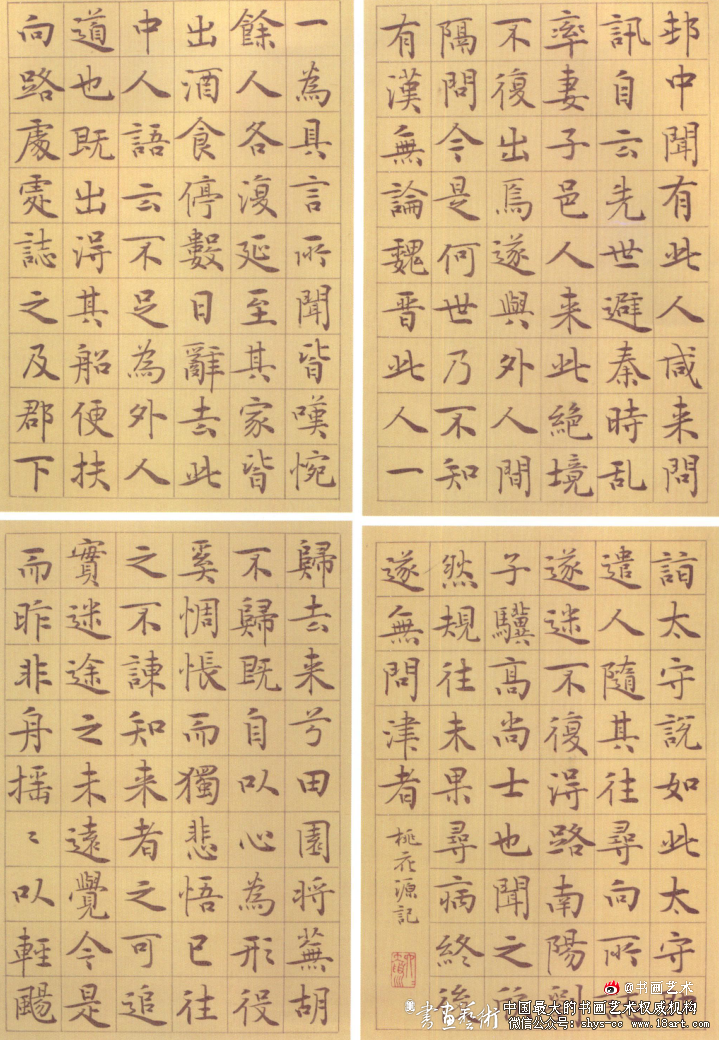 邨中聞有此人咸来問
訊自云先世避秦時乱
率妻子邑人来此絶境
不復出焉遂與外人間
隔問今是何世乃不知
有漢無論魏晉此人一
一為具言所聞皆嘆惋
餘人各復延至其家皆
出酒食停數日辭去此
中人語云不足為外人
道也既出得其船便扶
向路處處誌之及郡下
詣太守説如此太守
遣人隨其往尋向所
遂迷不復得路南陽劉
子驥高尚士也聞之
然規往未果尋病終後
遂無問津者
桃花源記
歸去来兮田園将蕪胡
不歸既自以心為形役
奚惆悵而獨悲悟已往
之不諫知来者之可追
實迷途之未遠覺今是
而昨非舟揺〻以軽颺
@书画艺术
書畫藝術
中国最大的书画艺术权威机构
微信公众号：shys-cc www.18art.com